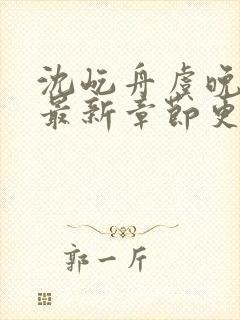 沈屹舟虞晚
最新章节更
郭一斤